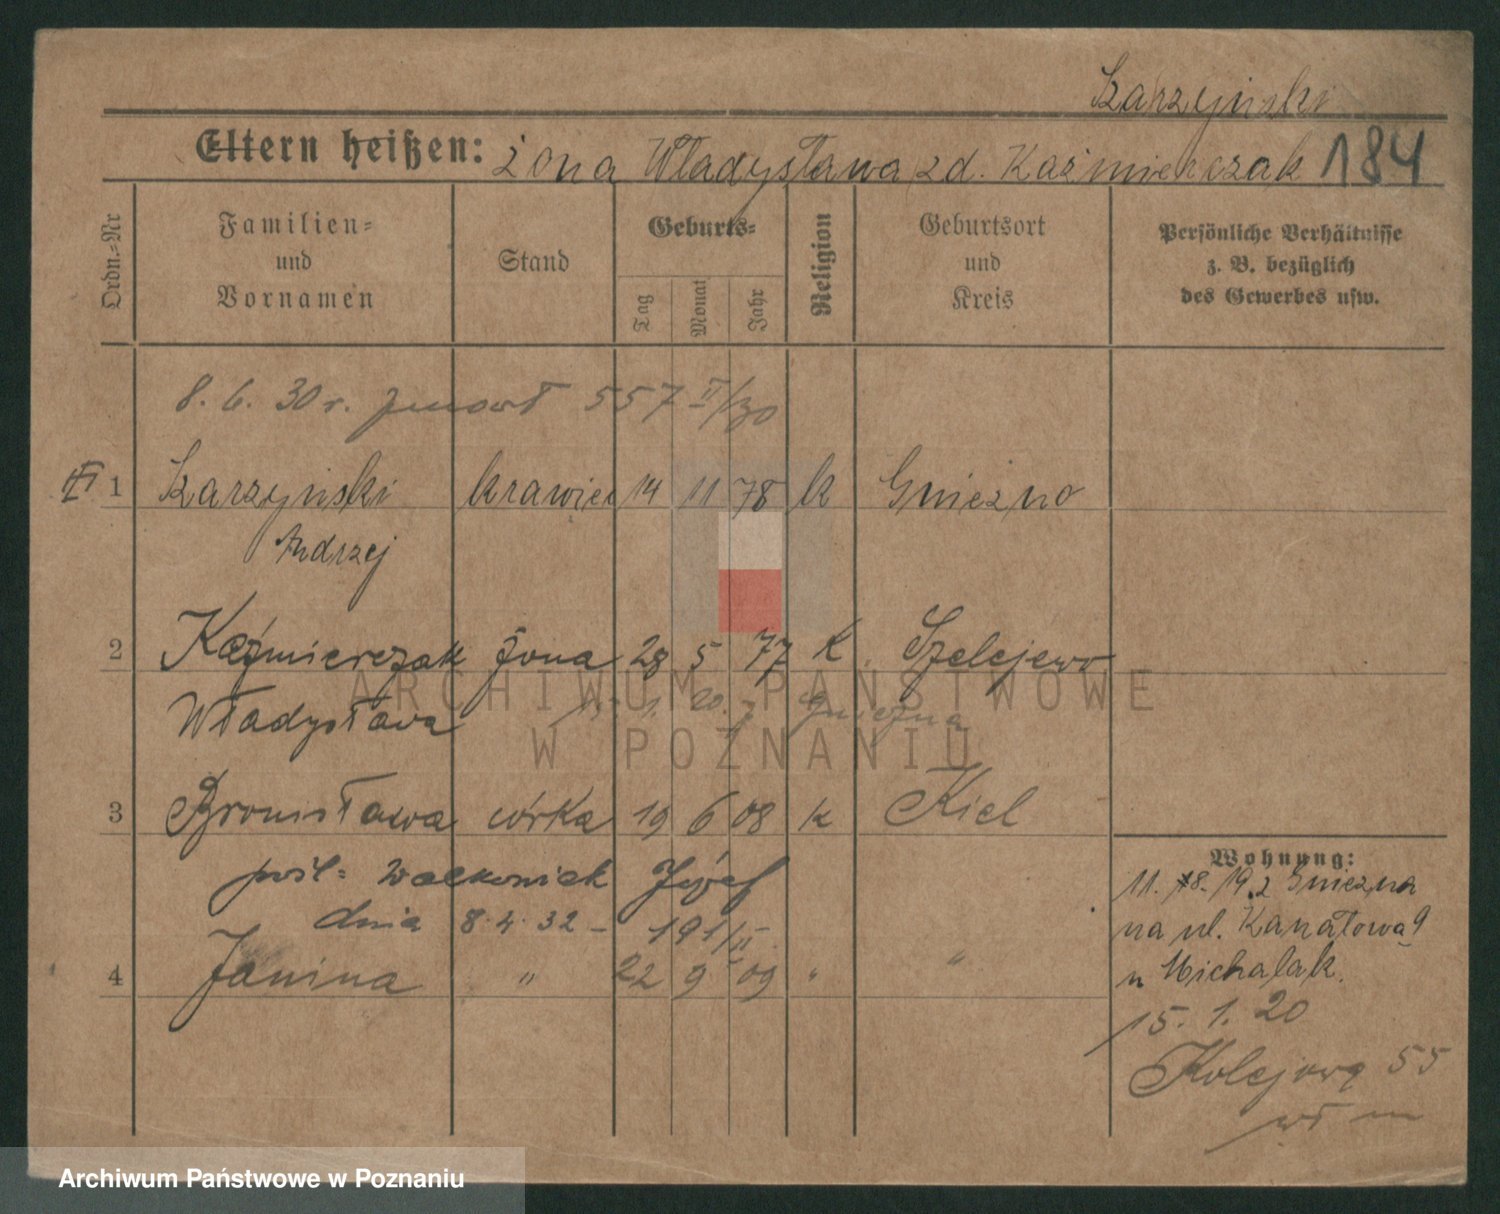 Szarzyński
Eltern heißen: żona Władysława zd. Kaźmierczak 184
Ordn.-Nr
Familien=
und
Vornamen
Stand
Geburts=
Tag
Monat
Jahr
Religion
Geburtsort
und
Kreis
Persönliche Verhältnisse
z. B. bezüglich
des Gewerbes usw.
8. 6. 30 r. 557 II/30
1 Szarzyński krawiec 14 11 78 k Gniezno
Andrzej
2 Kaźmierczak żona 28 5 77 k. Szelejewo
Władysława
3 Bronisława córka 19 6 08 k Kiel
Józef
dnia 8.4.32 - 191/II.
4 Janina " 22 9 09 " "
Wohnung:
11. 18. 19. z Gniezna
na ul. Kanałowa 9
u Michalak.
15. 1. 20
Kolejową 55
ARCHIWUM PAŃSTWOWE
W POZNANIU
Archiwum Państwowe w Poznaniu